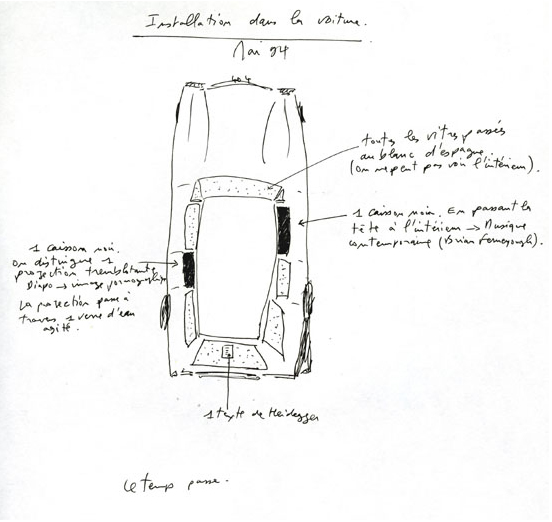 Installation dans la voiture.
Mai 94
404
toutes les vitres passées
au blanc d'espagne.
(On ne peut pas voir l'intérieur).
1 caisson noir. En passant la
tête à l'intérieur → Musique
contemporaine (Brian Ferneyhough).
1 caisson noir.
On distingue 1
projection tremblotante
Diapo → image pornographique
La projection passe à
travers 1 verre d'eau
agité.
1 texte de Heidegger
Le temps passe.